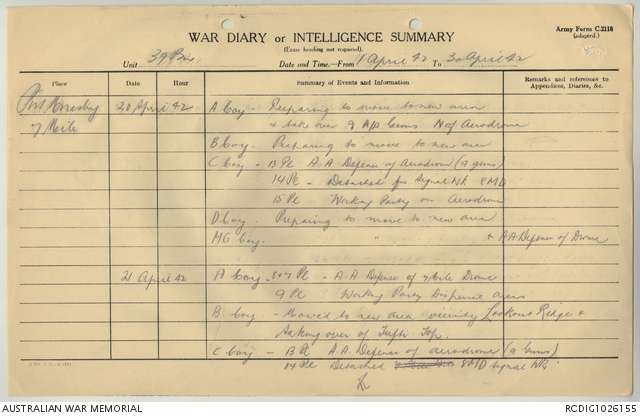 Army Form C.2118
(adapted.)
WAR DIARY or INTELLIGENCE SUMMARY
(Erase heading not required).
Unit 39 Bn. Date and Time.—From 1 April 42 To 30 April 42
Place Date Hour Summary of Events and Information Remarks and references to Appendices, Diaries, &c.
Port Moresby 20 April 42 A Coy - Preparing to move to new area
7 Mile & take over 9 Guns Aerodrome
B Coy. Preparing to move to new area
C Coy - 13 Pl A.A. Defence of Aerodrome (9 guns)
14 Pl - Detached for Signal 8 MD
15 Pl Working Party on Aerodrome
D Coy. Preparing to move to new area
MG Coy. " " & A.A. Defence of Drome
21 April 42 A Coy - 8 & 7 Pl - A.A. Defence of 7 Mile Drome
9 Pl Working Party Dispersal area
B Coy - Moved to new area vicinity Lookout Ridge &
taking over of
C Coy - 13 Pl A.A. Defence of aerodrome (9 Guns)
14 Pl Detached 8 MD Signal
AUSTRALIAN WAR MEMORIAL RCDIG1026155